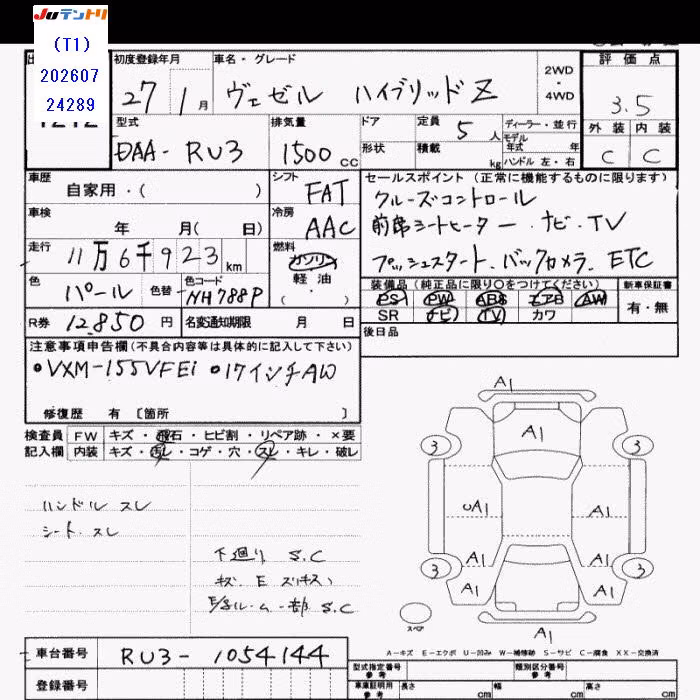 Juテントリ
(T1)
202607
24289
初度登録年月
27 1月
車名・グレード
ヴェゼル ハイブリッドZ
2WD
・
4WD
評価点
3.5
外装 内装
C C
型式
DAA-RU3
排気量
1500 cc
ドア
形状
定員 5 人
積載 kg
ディーラー・並行
モデル
年式 年
ハンドル 左・右
車歴
自家用・( )
シフト
FAT
セールスポイント(正常に機能するものに限ります)
クルーズコントロール
前席シートヒーター ナビ・TV
プッシュスタート.バックカメラ. ETC
車検
年 月( 日)
冷房
AAC
走行
11万6千923km
燃料
ガソリン
軽油
( ・ )
色
パール
色替
色コード
NH788P
装備品(純正品に限り○をつけてください)
PS PW ABS エアB AW
SR ナビ TV カワ
新車保証書
有・無
R券 12,850円
名変通知期限 月 日
後日品
注意事項申告欄(不具合内容等は具体的に記入して下さい)
•VXM-155VFEi •17インチAW
修復歴 有〔箇所 〕
検査員 FW キズ・飛石・ヒビ割・リペア跡・×要
記入欄 内装 キズ・汚レ・コゲ・穴・スレ・キレ・破レ
ハンドル スレ
シート スレ
下廻り S.C
キズ.E スリキズ
E/gルーム一部 S.C
A1
A1
3 3
A1 A1
A1 A1
3 3
A1 A1
A1
スペア
A-キズ E-エクボ U-凹み W-補修跡 S-サビ C-腐食 XX-交換済
車台番号 RU3-1054144
登録番号
型式指定番号
参考
類別区分番号
参考
車庫証明用
参考
長さ cm
幅 cm
高さ cm